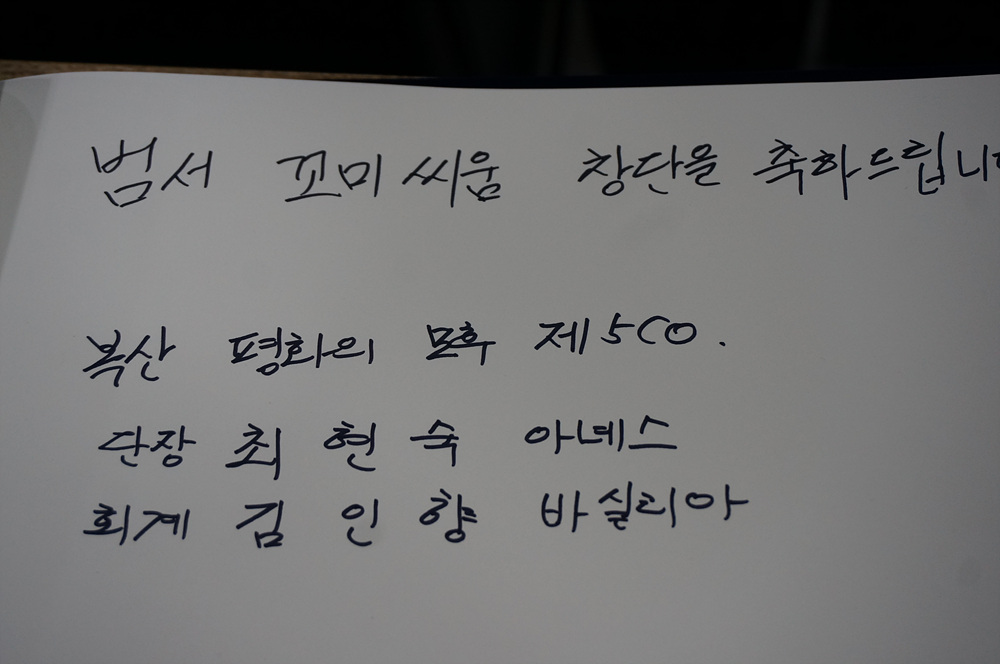 범서 꼬미씨움 창단을 축하드립니다
복산 평화의 모후 제5CO.
단장 최 현 숙 아녜스
회계 김 인 향 바실리아